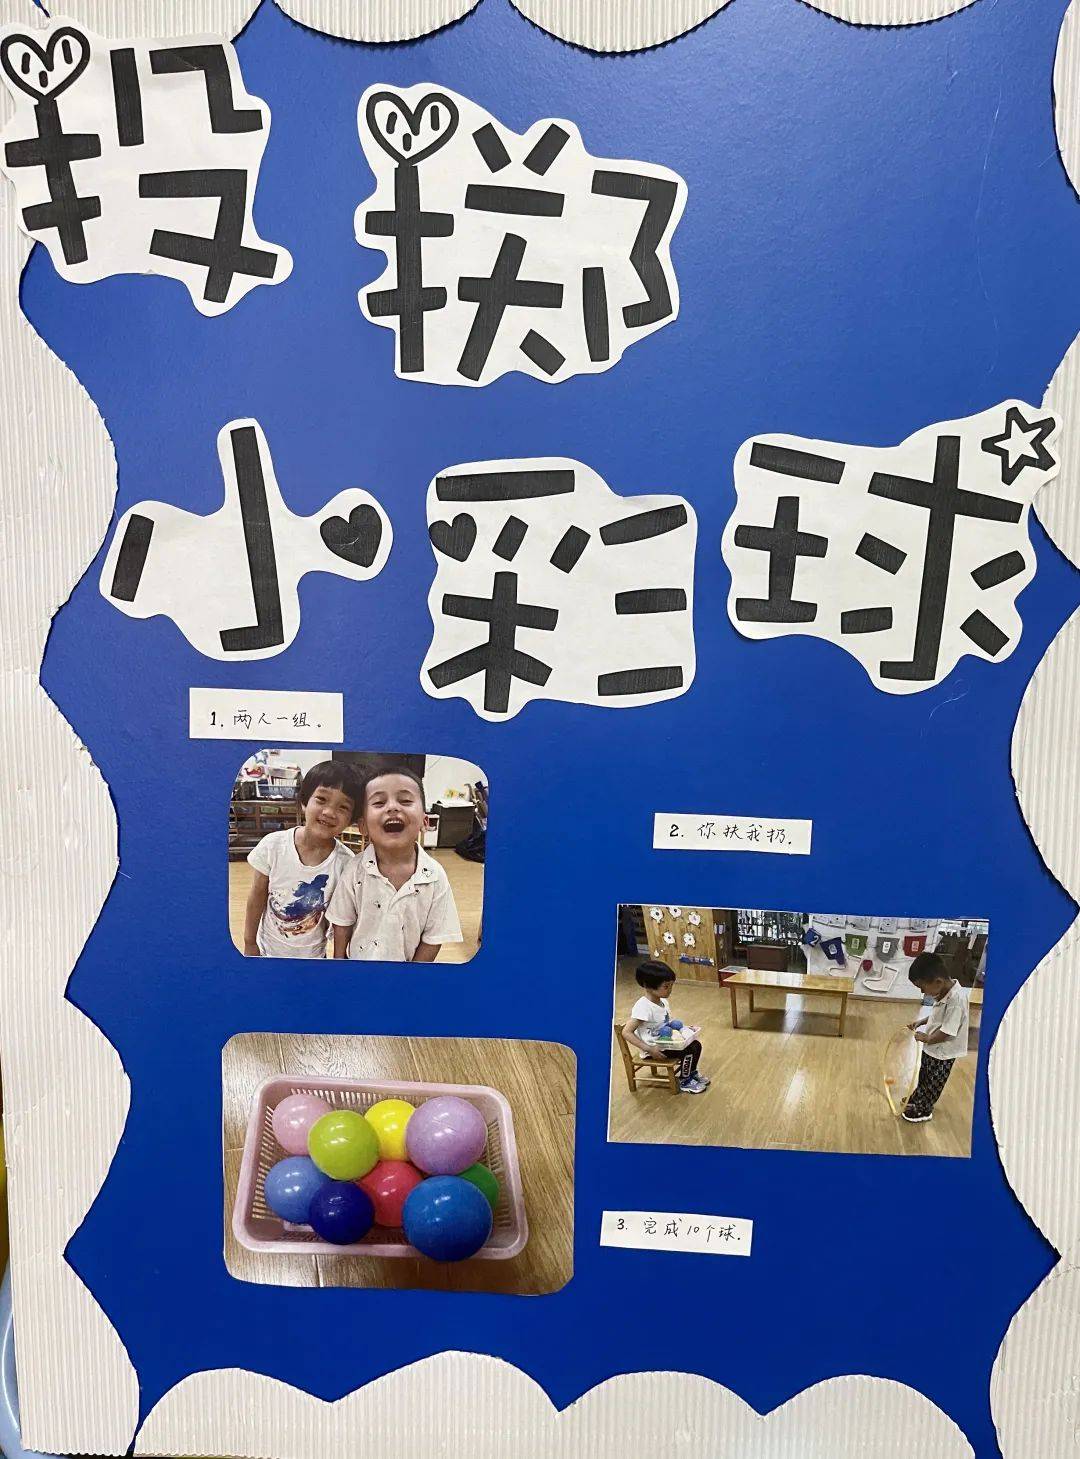 投掷
小彩球
1. 两人一组。
2. 你扶我扔.
3. 完成10个球.